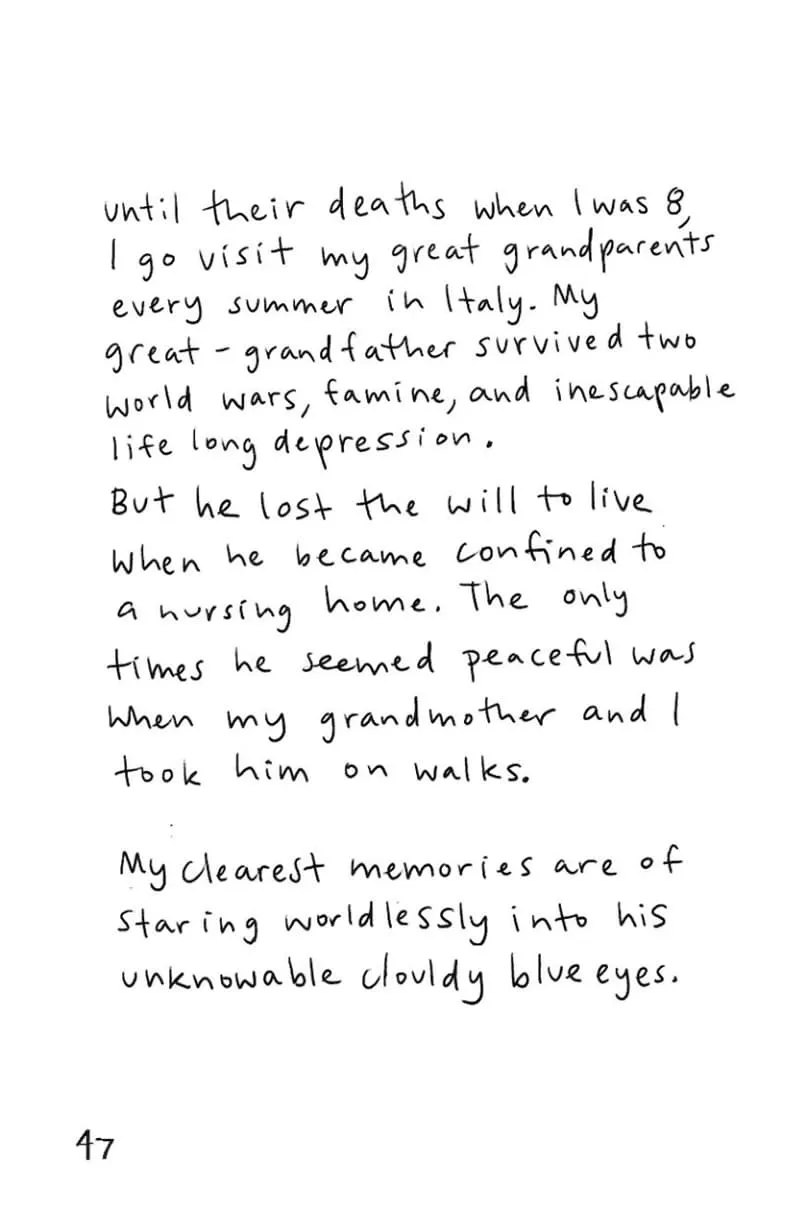 until their deaths when I was 8,
I go visit my great grandparents
every summer in Italy. My
great-grandfather survived two
world wars, famine, and inescapable
life long depression.
But he lost the will to live
when he became confined to
a nursing home. The only
times he seemed peaceful was
when my grandmother and I
took him on walks.
My clearest memories are of
staring worldlessly into his
unknowable clouldy blue eyes.
47